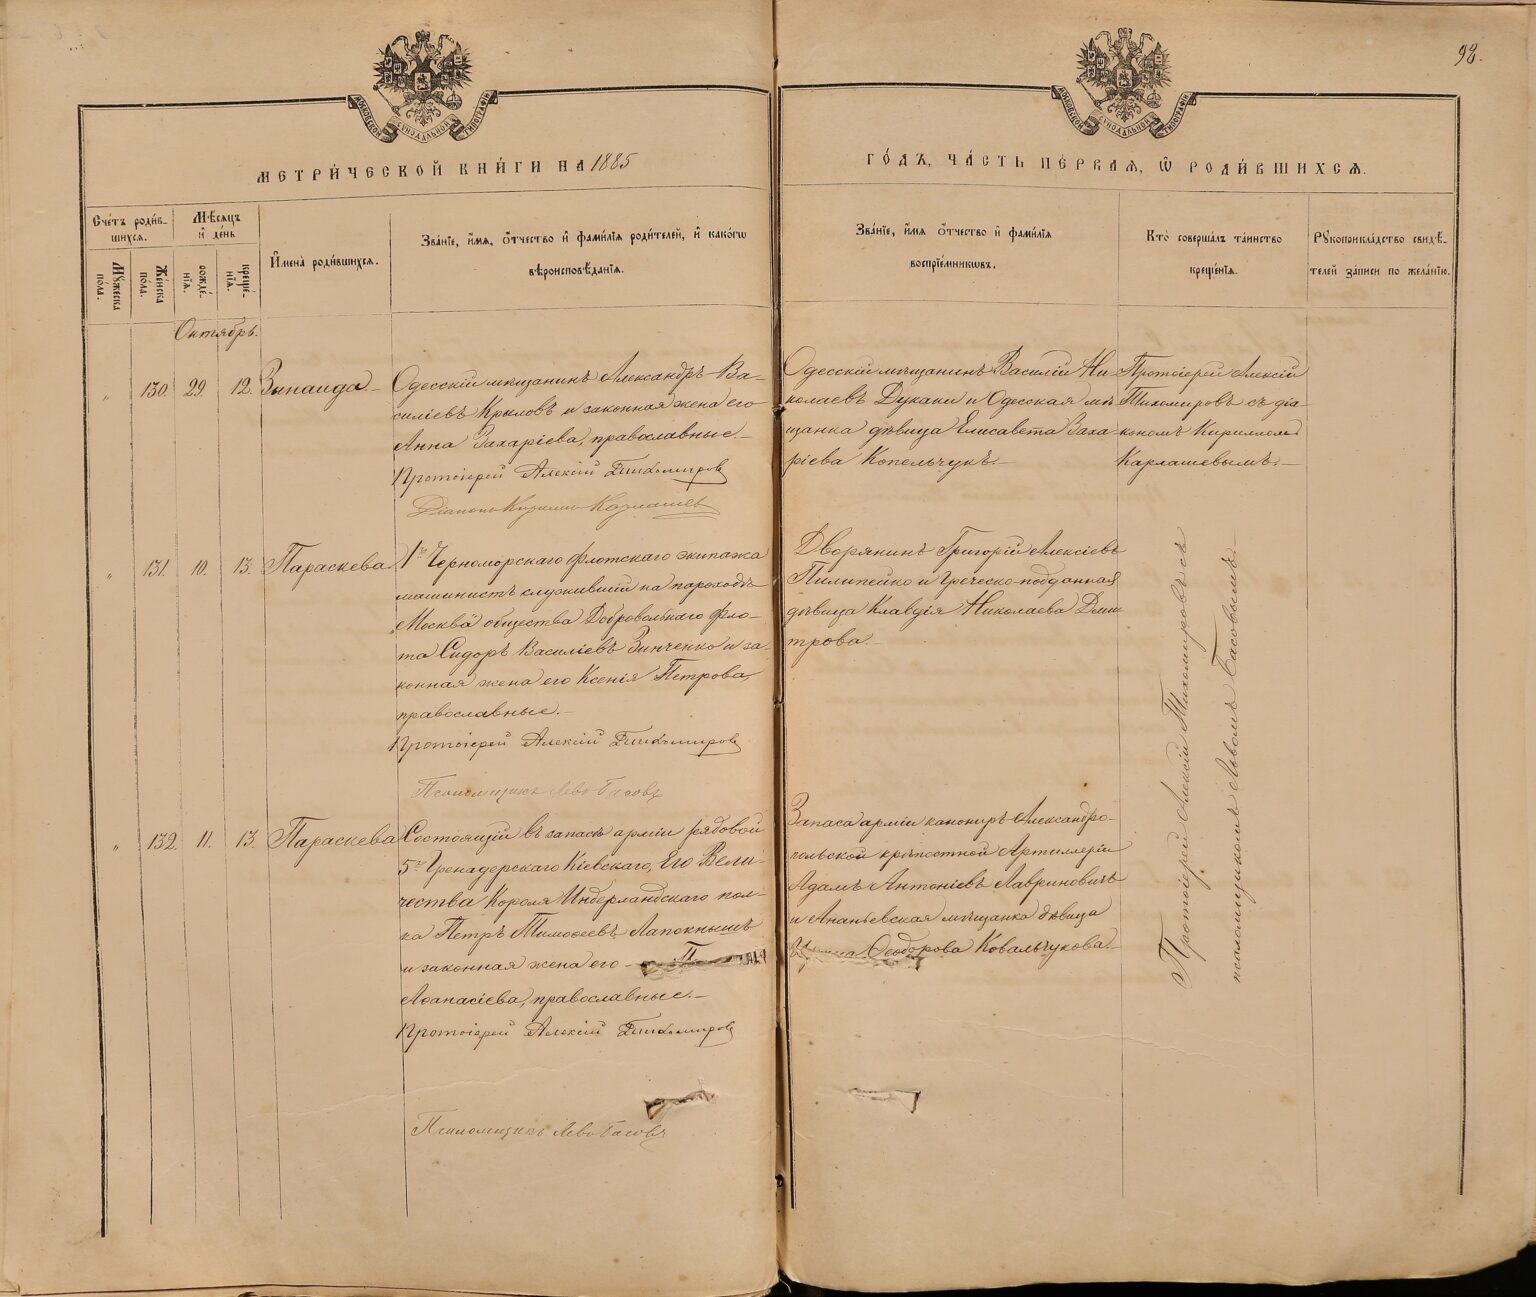 98.
МОСКОВСКОЙ СѴНОДАЛЬНОЙ ТИПОГРАФІИ
МОСКОВСКОЙ СѴНОДАЛЬНОЙ ТИПОГРАФІИ
МЕТРИ́ЧЕСКОЙ КНИ́ГИ НА 1885
ГО́ДЪ, ЧА́СТЬ ПЕ́РВАЯ, Ѡ҆ РОДИ́ВШИХСЯ.
Сче́тъ роди́в-
шихся.
Мѣ́сяцъ
и҆ де́нь
Мꙋ́жеска
по́ла.
Же́нска
по́ла.
рожде́-
нїя.
креще́-
нїя.
И҆мена̀ роди́вшихся.
Зва́нїе, и҆́мя, ѻ҆́тчество и҆ фами́лїя роди́телей, и҆ како́гѡ
вѣроисповѣ́данїя.
Зва́нїе, и҆́мя ѻ҆́тчество и҆ фами́лїя
воспрїе́мникѡвъ.
Кто̀ соверша́лъ та́инство
креще́нїя.
Рꙋкоприкла́дство свидѣ́-
телей за́писи по жела́нїю.
Октябрь.
" 130. 29. 12. Зинаида.
Одесскій мѣщанинъ Александръ Ва-
силіевъ Крыловъ и законная жена его
Анна Захаріева, православные.
Протоіерей Алексій Тихомировъ
Діаконъ Кириллъ Карлашевъ
Одесскій мѣщанинъ Василій Ни-
колаевъ Дукаки и Одесская мѣ-
щанка дѣвица Елисавета Заха-
ріева Копельчукъ.
Протоіерей Алексій
Тихомировъ съ діа-
кономъ Кирилломъ
Карлашевымъ.
" 131. 10. 13. Параскева
1го Черноморскаго флотскаго экипажа
машинистъ служившій на пароходѣ
"Москва" общества Добровольнаго фло-
та Сидоръ Василіевъ Зинченко и за-
конная жена его Ксенія Петрова,
православные.
Протоіерей Алексій Тихомировъ
Псаломщикъ Левъ Басовъ
Дворянинъ Григорій Алексіевъ
Пилипейко и Греческо-подданная
дѣвица Клавдія Николаева Дми-
трова.
Протоіерей Алексій Тихомировъ съ
псаломщикомъ Львомъ Басовымъ.
" 132. 11. 13. Параскева
Состоящій въ запасѣ арміи рядовой
5го Гренадерскаго Кіевскаго, Его Вели-
чества Короля Нидерландскаго пол-
ка Петръ Тимофеевъ Лапокнышъ
и законная жена его
Аѳанасіева, православные.
Протоіерей Алексій Тихомировъ
Псаломщикъ Левъ Басовъ
Запаса арміи канониръ Александро-
польской крѣпостной Артиллеріи
Адамъ Антоніевъ Лавриновичъ
и Ананьевская мѣщанка дѣвица
Ѳеодорова Ковальчукова.